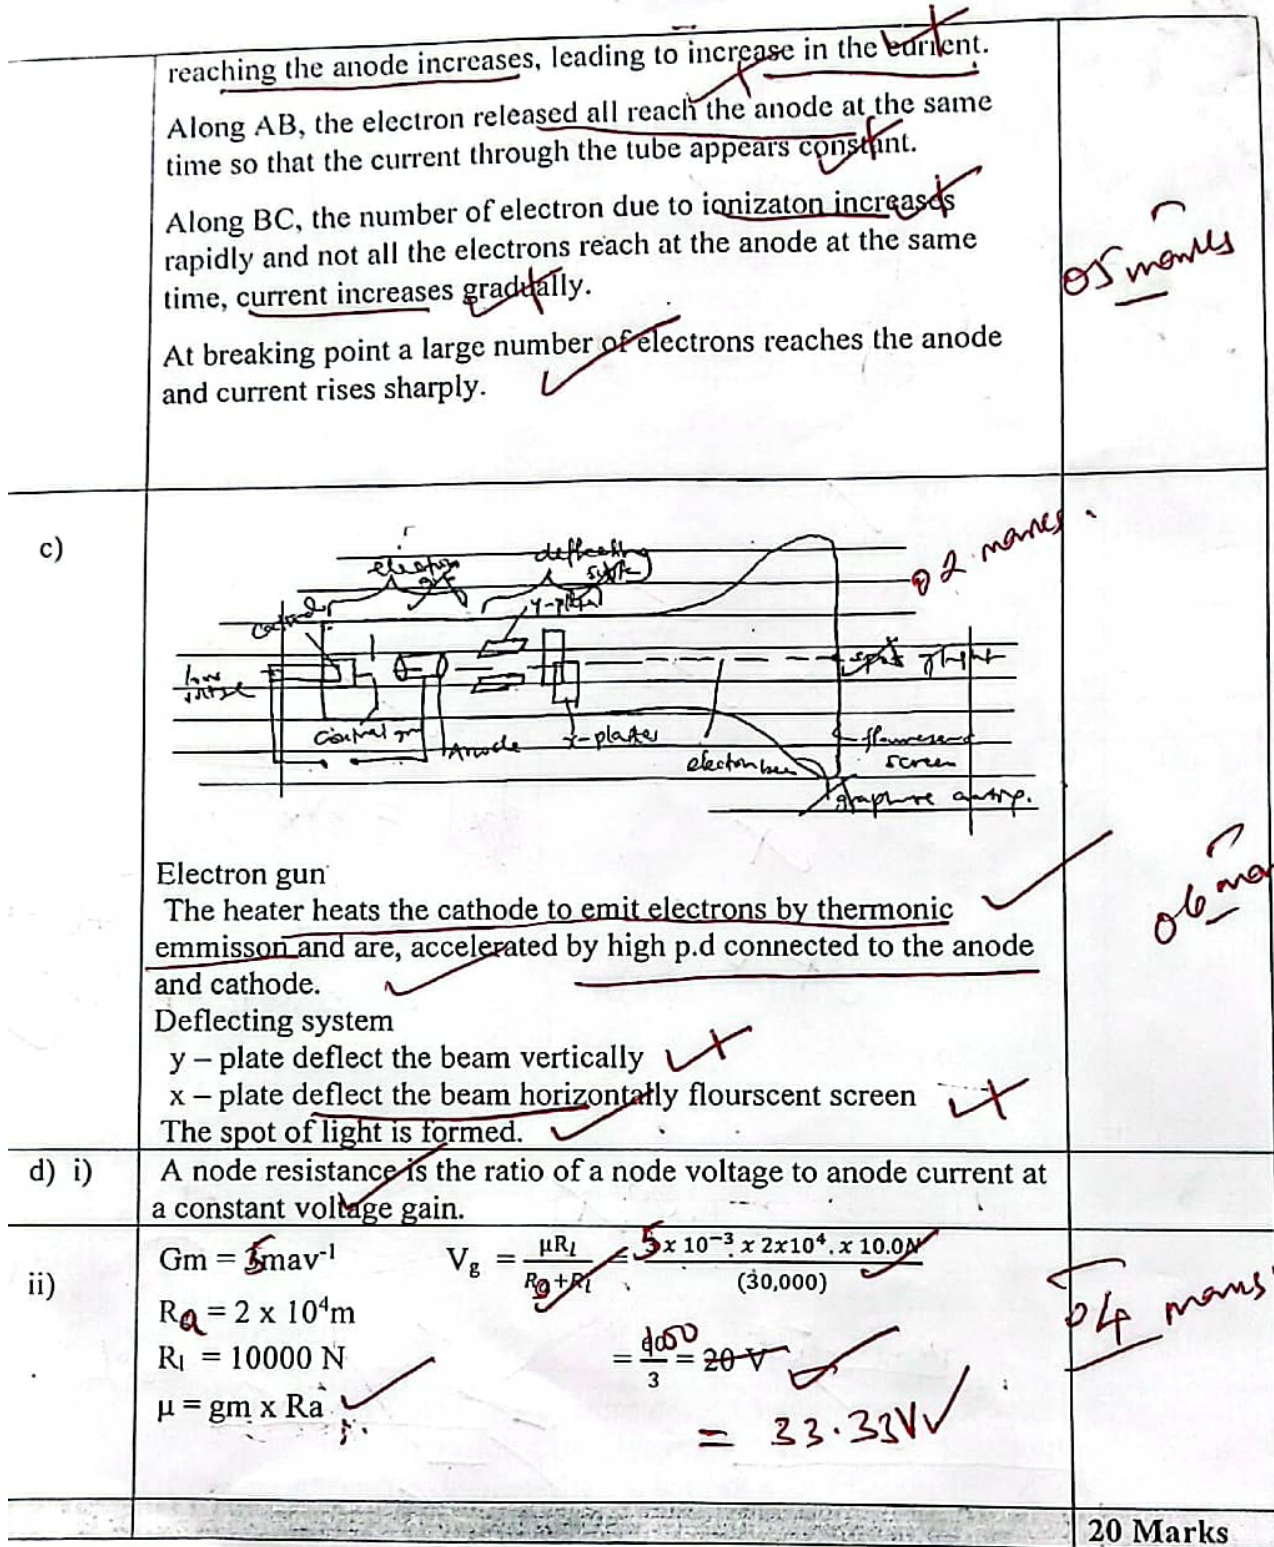 reaching the anode increases, leading to increase in the current.
Along AB, the electron released all reach the anode at the same
time so that the current through the tube appears constant.
Along BC, the number of electron due to ionizaton increases
rapidly and not all the electrons reach at the anode at the same
time, current increases gradually.
05 marks
At breaking point a large number of electrons reaches the anode
and current rises sharply.
c)
02 marks.
electron gun
deflecting system
cathode
y-plates
spot of light
control
Anode
x-plates
electron beam
screen
Electron gun
The heater heats the cathode to emit electrons by thermonic
emmisson and are, accelerated by high p.d connected to the anode
and cathode.
06
Deflecting system
y – plate deflect the beam vertically
x – plate deflect the beam horizontally flourscent screen
The spot of light is formed.
d) i) A node resistance is the ratio of a node voltage to anode current at
a constant voltage gain.
ii) Gm = 5mav⁻¹ Vg = μRl / Ra+Rl = 5x 10⁻³ x 2x10⁴. x 10.0N / (30,000)
Ra = 2 x 10⁴m
Rl = 10000 N = 100 / 3 = 20 V
μ = gm x Ra
= 33.33V
04 marks
20 Marks